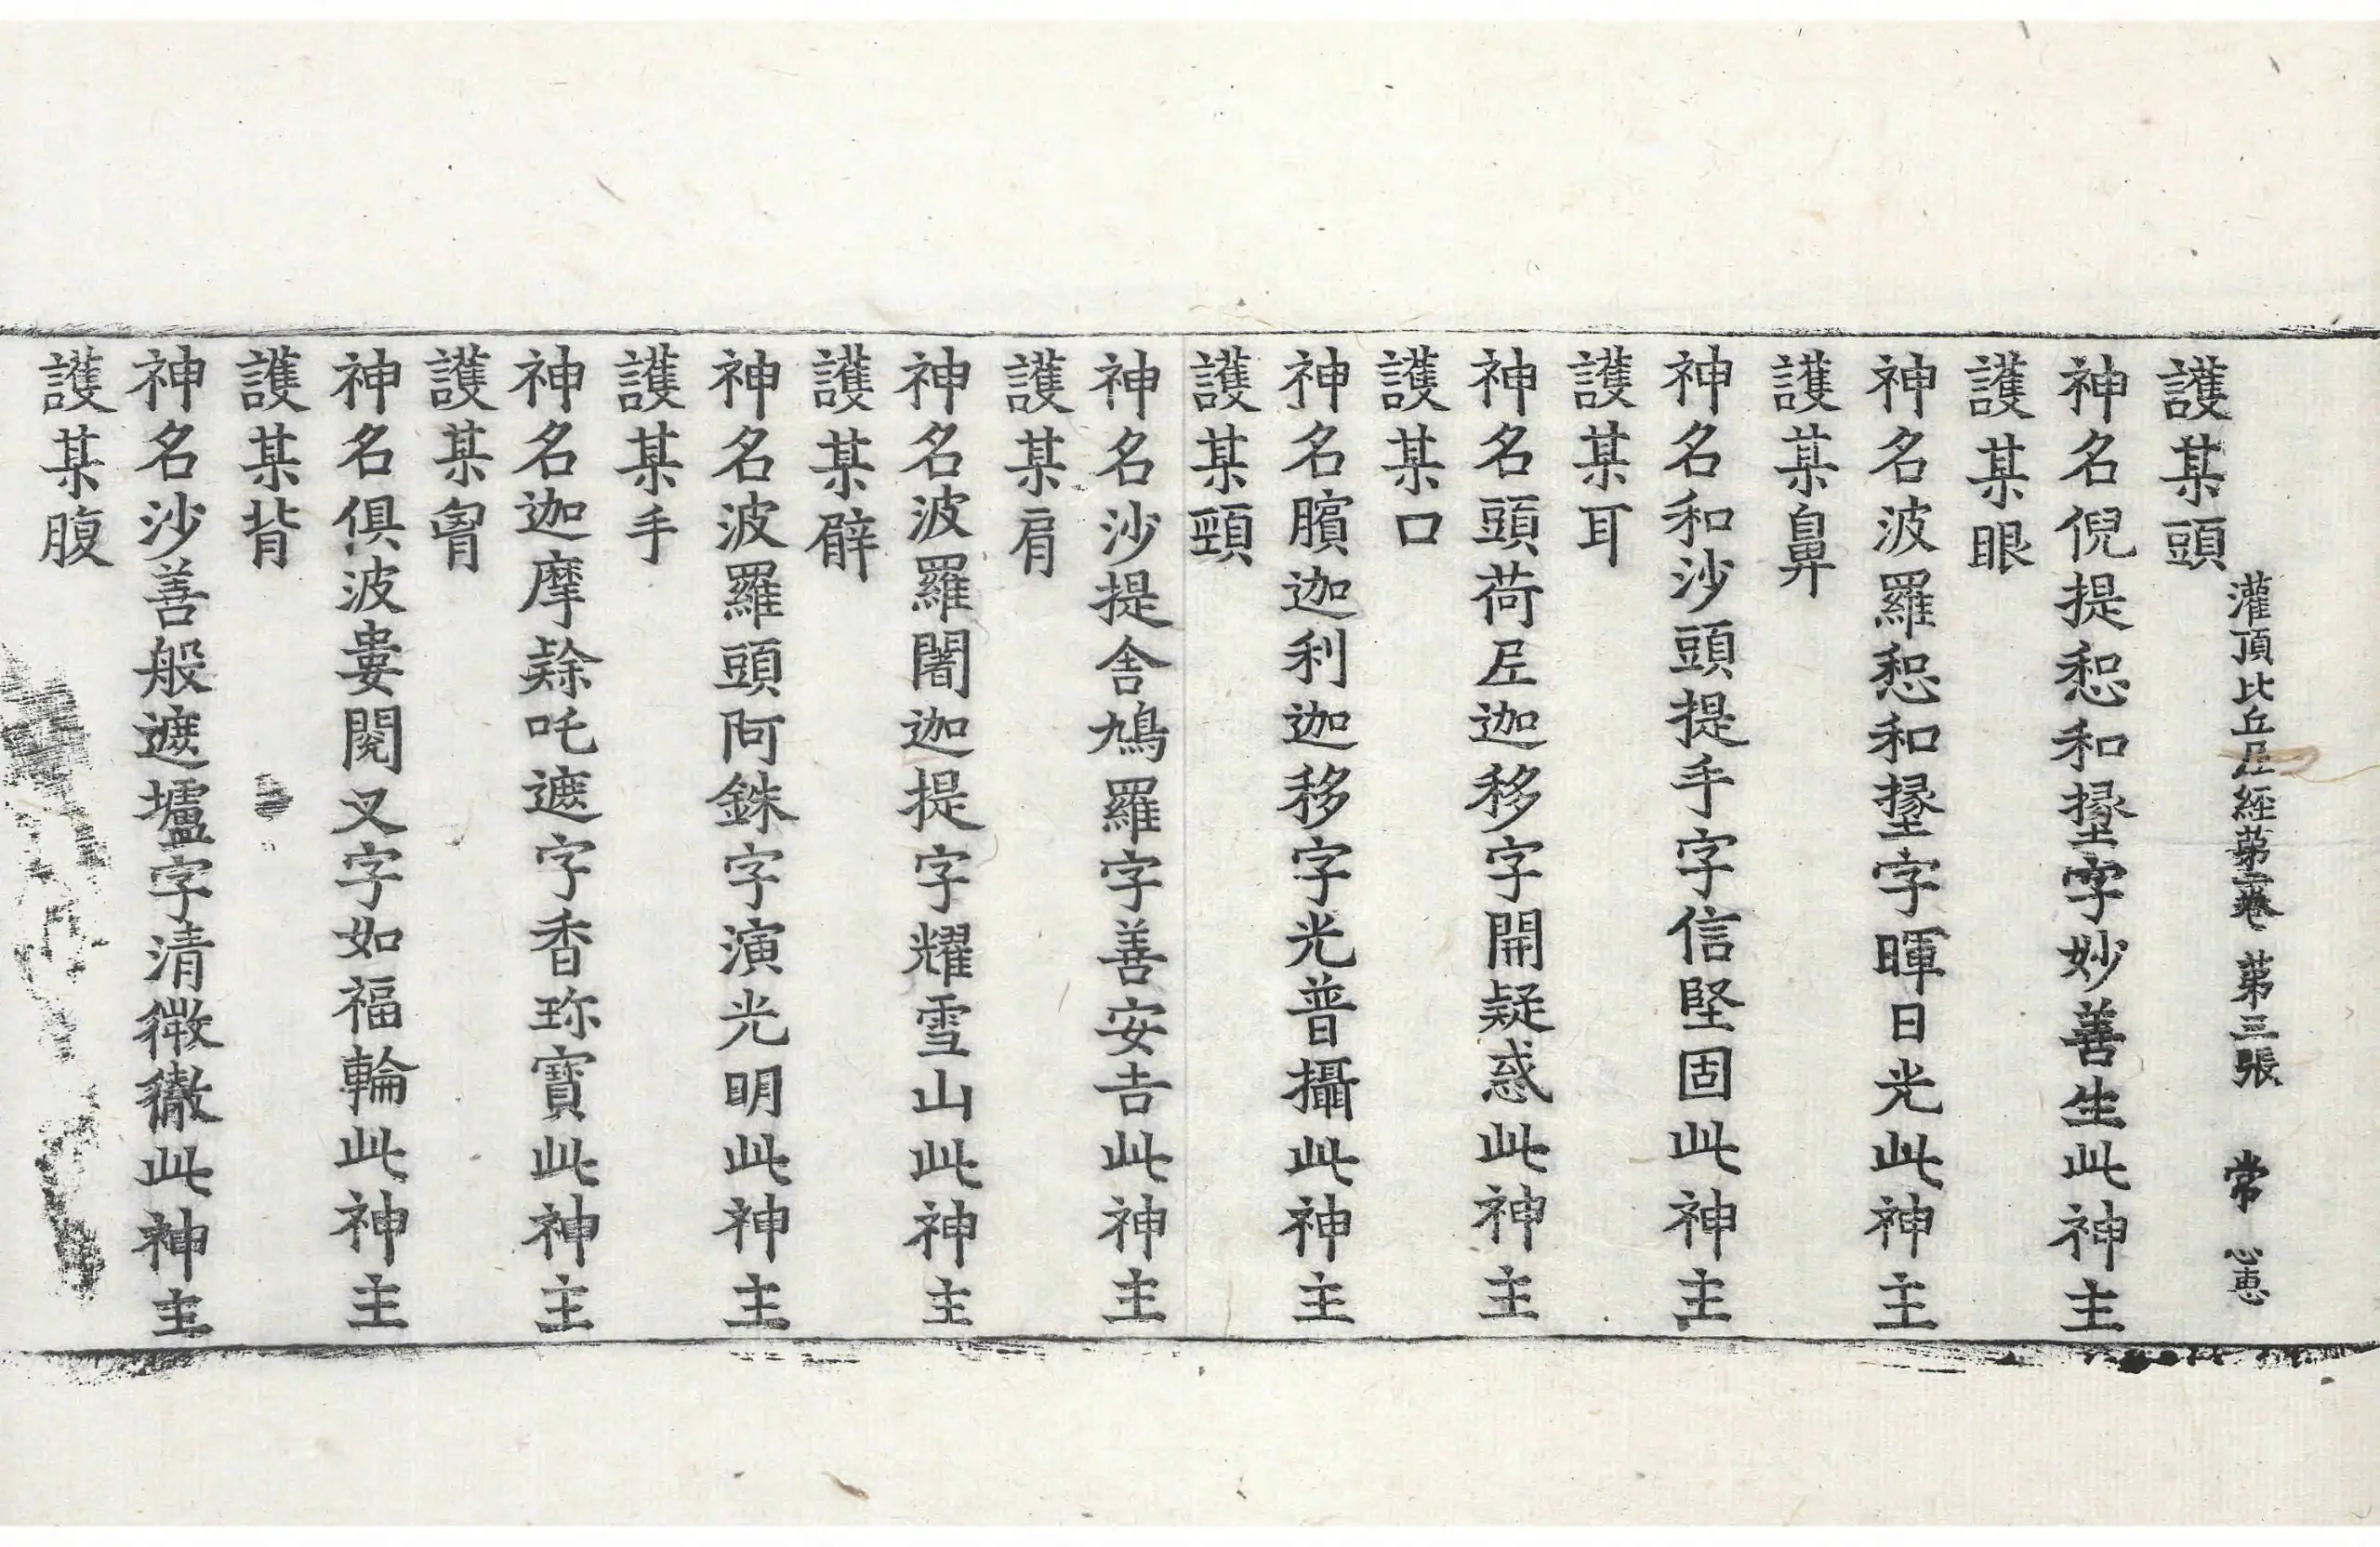 灌頂比丘尼經第二卷 第三張 常 心惠
護某頭
神名倪提惒和㙇字妙善生此神主
護某眼
神名波羅惒和㙇字暉日光此神主
護某鼻
神名和沙頭提手字信堅固此神主
護某耳
神名頭荷𡰱迦移字開疑惑此神主
護某口
神名臏迦利迦移字光普攝此神主
護某頸
神名沙提舍鳩羅字善安吉此神主
護某肩
神名波羅闍迦提字耀雪山此神主
護某臂
神名波羅頭阿銖字演光明此神主
護某手
神名迦摩賖吒遮字香珎寶此神主
護某胷
神名俱波婁閱叉字如福輪此神主
護某背
神名沙善般遮壚字清徴徹此神主
護某腹